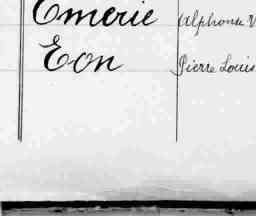 Emerie Alphonse V
Eon Pierre Louis